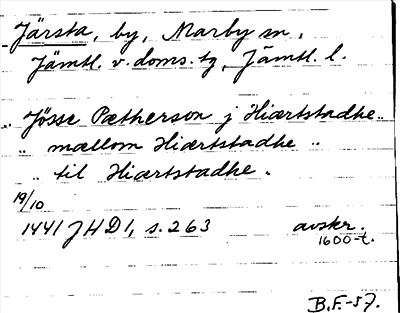 Järsta, by, Marby sn,
Jämtl. v. doms. tg, Jämtl. l.
„ Jösse Pætherson j Hiærtstadhe „
„ mællom Hiærtstadhe „
„ til Hiærtstadhe.
19/10
1441 JHD1, s. 263 avskr.
1600-t.
B.F.-57.